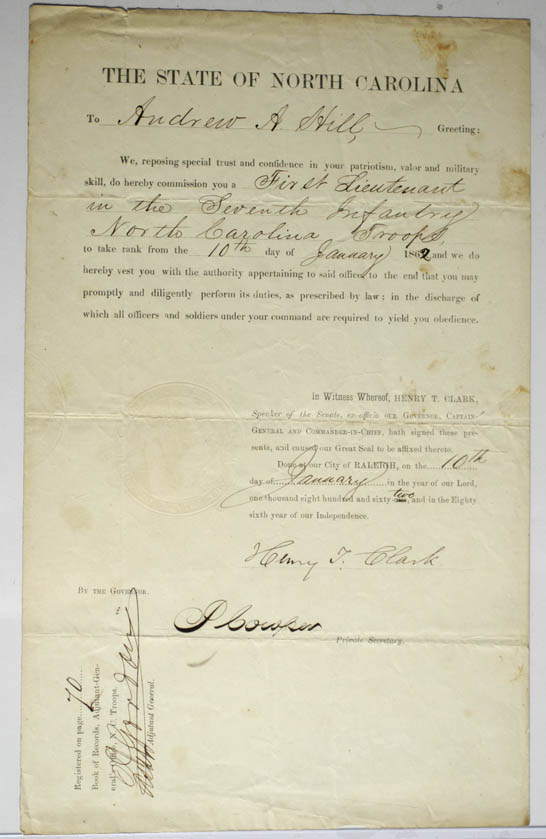 THE STATE OF NORTH CAROLINA
To Andrew A. Hill, Greeting:
We, reposing special trust and confidence in your patriotism, valor and military
skill, do hereby commission you a First Lieutenant
in the Seventh Infantry
North Carolina Troops,
to take rank from the 10th day of January 1862, and we do
hereby vest you with the authority appertaining to said office, to the end that you may
promptly and diligently perform its duties, as prescribed by law; in the discharge of
which all officers and soldiers under your command are required to yield you obedience.
in Witness Whereof, HENRY T. CLARK,
Speaker of the Senate, ex-officio OUR GOVERNOR, CAPTAIN-
GENERAL AND COMMANDER-IN-CHIEF, hath signed these pre-
sents, and caused our Great Seal to be affixed thereto.
Done at our City of RALEIGH, on the 10th
day of January in the year of our Lord,
one thousand eight hundred and sixty-two, and in the Eighty
sixth year of our Independence.
Henry T. Clark
BY THE GOVERNOR.
P Cowper
Private Secretary.
Registered on page 70
Book of Records, Adjutant-Gen-
eral's Office, N. C. Troops.
Adjutant General.